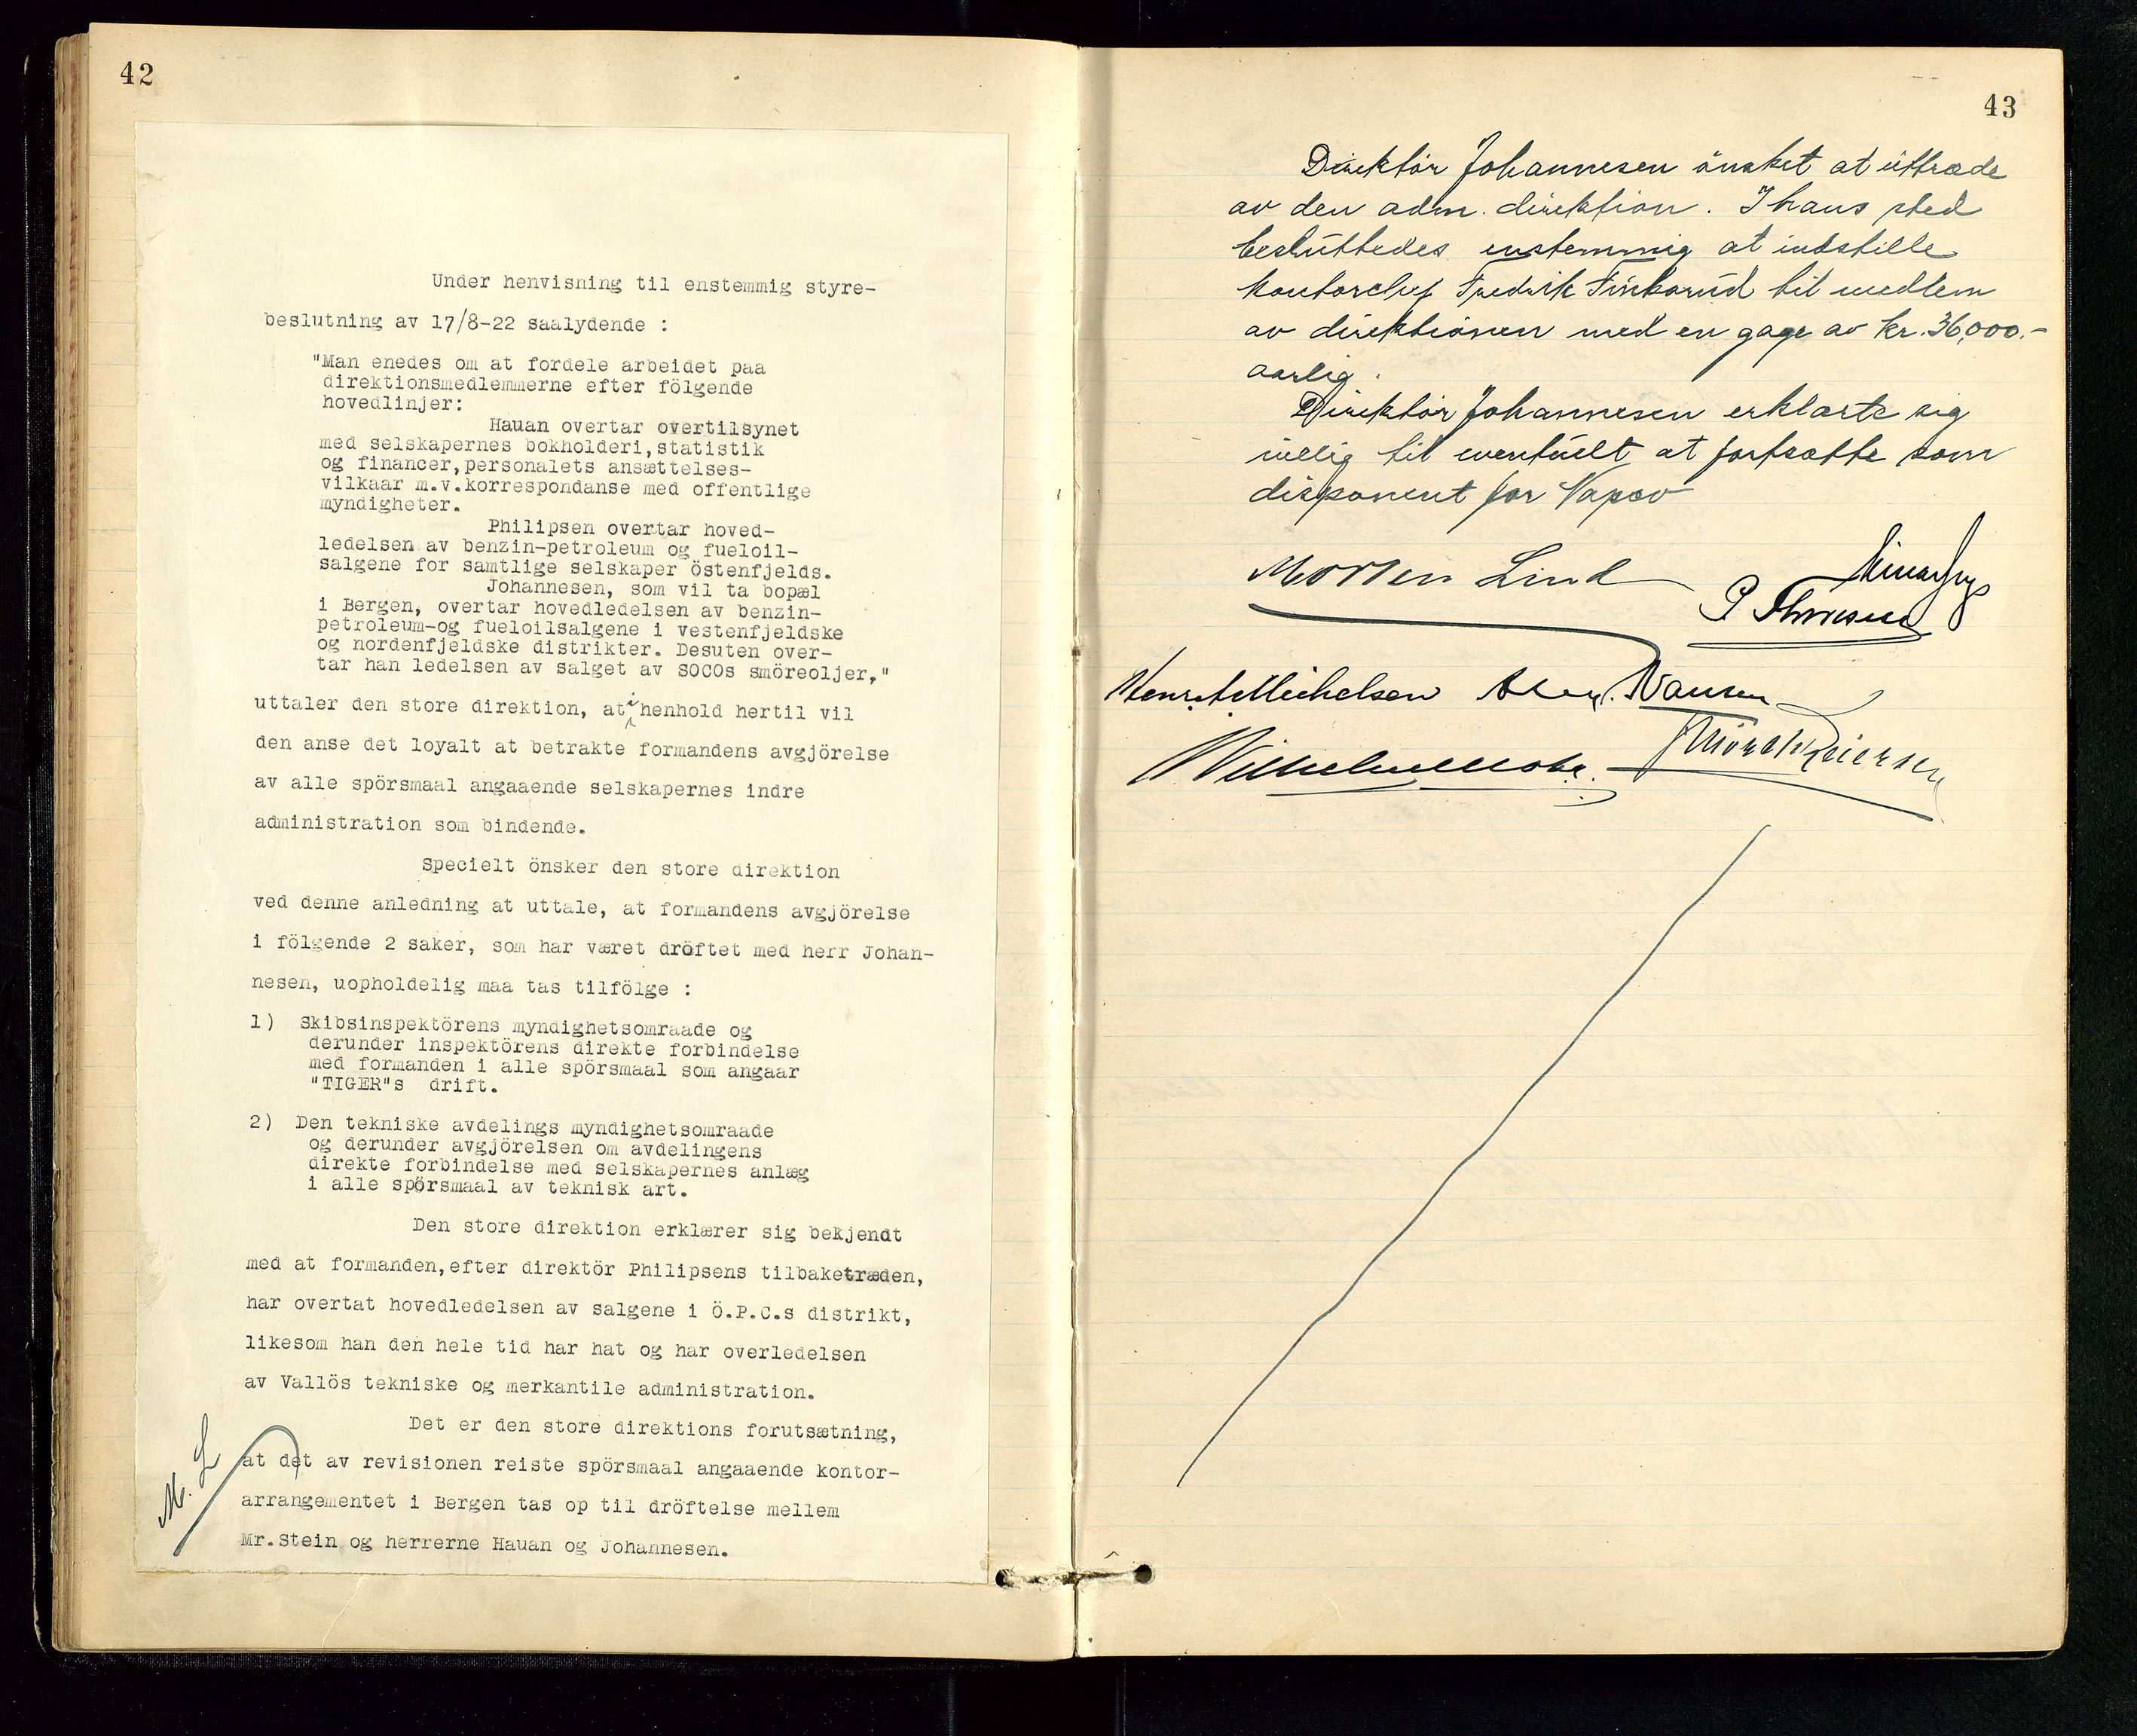 42
Under henvisning til enstemmig styre-
beslutning av 17/8-22 saalydende :
"Man enedes om at fordele arbeidet paa
direktionsmedlemmerne efter fölgende
hovedlinjer:
Hauan overtar overtilsynet
med selskapernes bokholderi,statistik
og financer,personalets ansættelses-
vilkaar m.v.korrespondanse med offentlige
myndigheter.
Philipsen overtar hoved-
ledelsen av benzin-petroleum og fueloil-
salgene for samtlige selskaper östenfjelds.
Johannesen, som vil ta bopæl
i Bergen, overtar hovedledelsen av benzin-
petroleum-og fueloilsalgene i vestenfjeldske
og nordenfjeldske distrikter. Desuten over-
tar han ledelsen av salget av SOCOs smöreoljer,"
uttaler den store direktion, at i henhold hertil vil
den anse det loyalt at betrakte formandens avgjörelse
av alle spörsmaal angaaende selskapernes indre
administration som bindende.
Specielt önsker den store direktion
ved denne anledning at uttale, at formandens avgjörelse
i fölgende 2 saker, som har været dröftet med herr Johan-
nesen, uopholdelig maa tas tilfölge :
1) Skibsinspektörens myndighetsomraade og
derunder inspektörens direkte forbindelse
med formanden i alle spörsmaal som angaar
"TIGER"s drift.
2) Den tekniske avdelings myndighetsomraade
og derunder avgjörelsen om avdelingens
direkte forbindelse med selskapernes anlæg
i alle spörsmaal av teknisk art.
Den store direktion erklærer sig bekjendt
med at formanden,efter direktör Philipsens tilbaketræden,
har overtat hovedledelsen av salgene i Ö.P.C.s distrikt,
likesom han den hele tid har hat og har overledelsen
av Vallös tekniske og merkantile administration.
Det er den store direktions forutsætning,
at det av revisionen reiste spörsmaal angaaende kontor-
arrangementet i Bergen tas op til dröftelse mellem
Mr.Stein og herrerne Hauan og Johannesen.
M. L
43
Direktör Johannesen önsket at uttræde
av den adm. direktion. I hans sted
besluttedes enstemmig at indstille
kontorchef Fredrik Finkarud til medlem
av direktionen med en gage av kr. 36,000.-
aarlig.
Direktör Johannesen erklærte sig
villig til eventuelt at fortsætte som
disponent for Vapco
Morten Lind
P Thoresen
Henr. A Michelsen Alex. Nansen
Wilhelm Mohr. J Mörch Reiersen